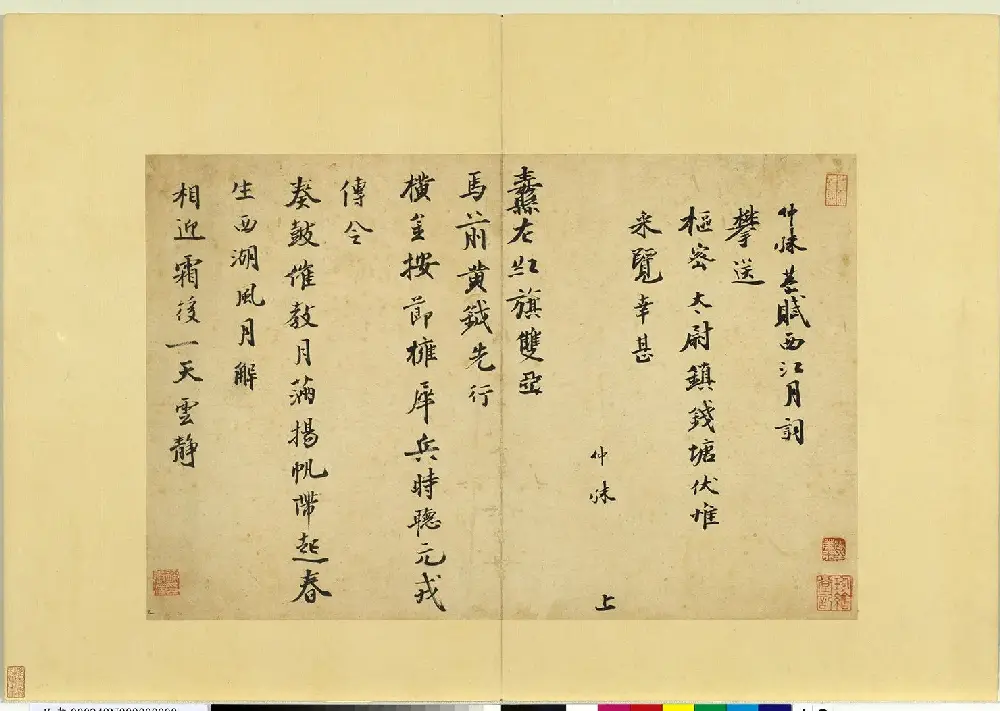 仲殊甚賦西江月詞
攀送
樞密太尉鎮錢塘伏惟
采覽幸甚
仲殊 上
纛縣左紅旗雙亞
馬前黃鉞先行
橫金按節擁犀兵時聽元戎
傳令
奏鼓催教月滿揚帆帶起春
生西湖風月解
相迎霜後一天雲靜